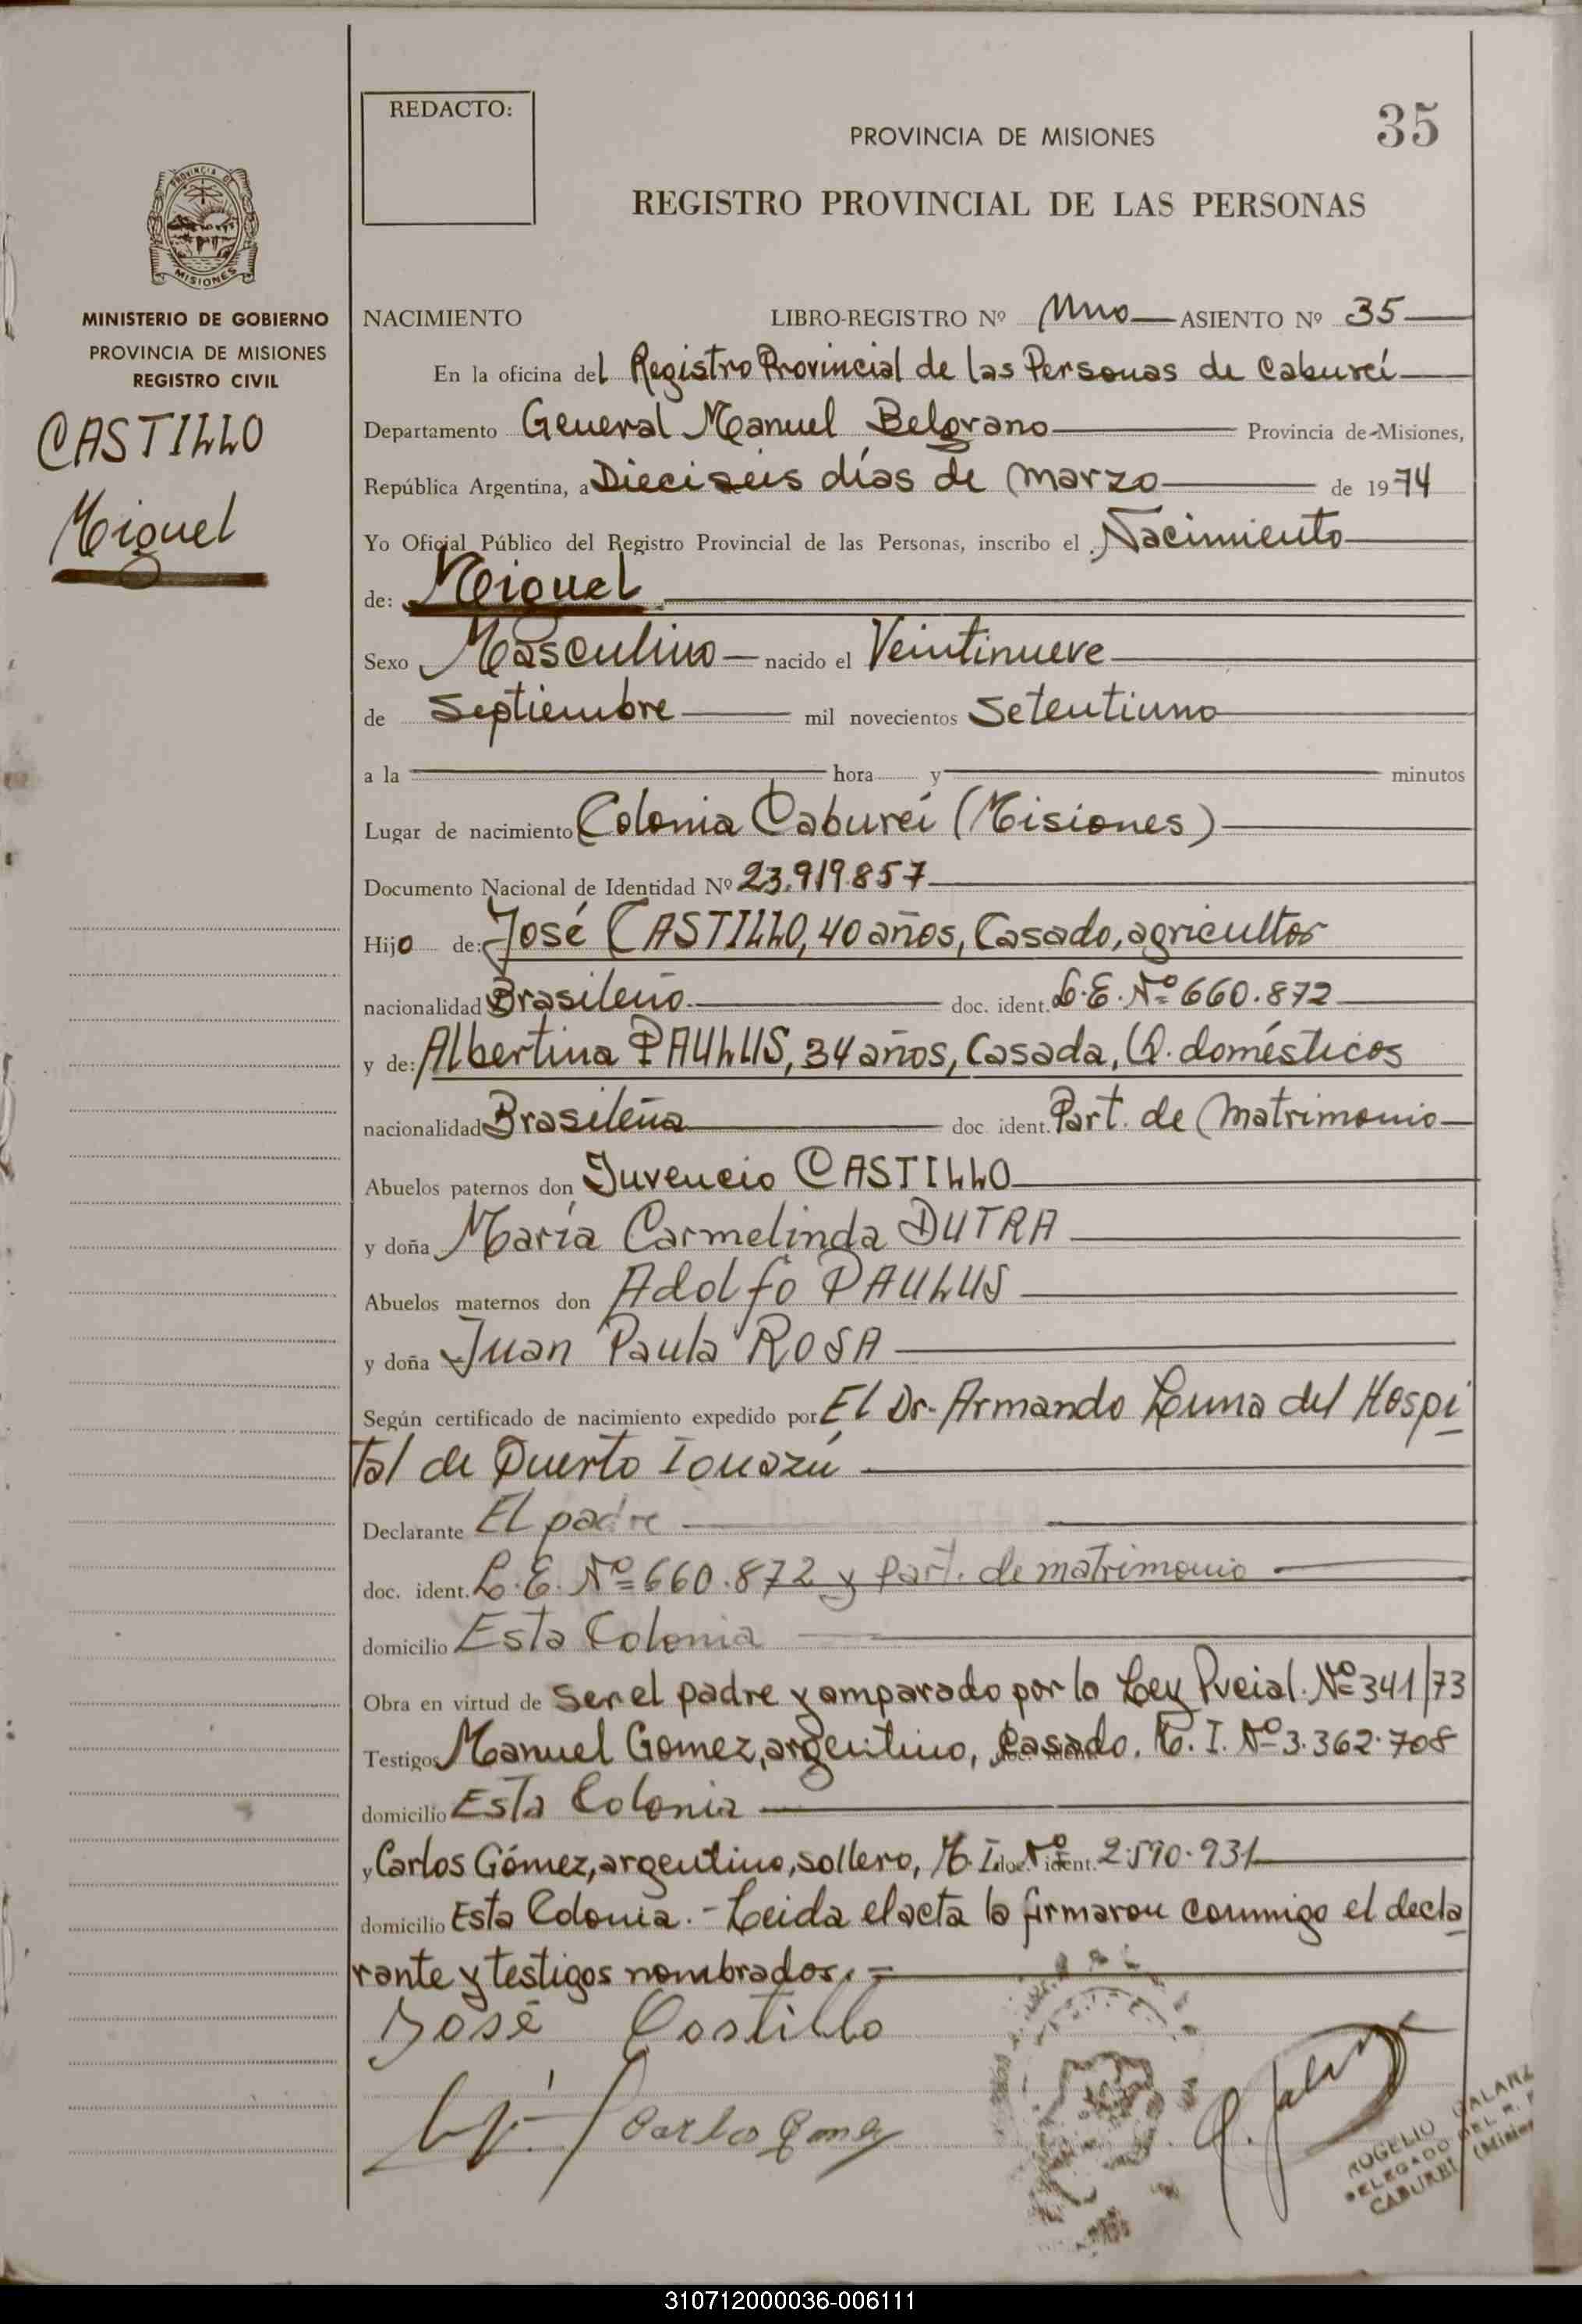 REDACTO:
35
PROVINCIA DE MISIONES
REGISTRO PROVINCIAL DE LAS PERSONAS
PROVINCIA DE
MISIONES
MINISTERIO DE GOBIERNO
PROVINCIA DE MISIONES
REGISTRO CIVIL
CASTILLO
Miguel
NACIMIENTO LIBRO-REGISTRO Nº Uno ASIENTO Nº 35
En la oficina del Registro Provincial de las Personas de Cabureí
Departamento General Manuel Belgrano Provincia de Misiones,
República Argentina, a Dieciseis días de Marzo de 1974
Yo Oficial Público del Registro Provincial de las Personas, inscribo el Nacimiento
de: Miguel
Sexo Masculino nacido el Veintinueve
de Septiembre mil novecientos Setentiuno
a la hora y minutos
Lugar de nacimiento Colonia Cabureí (Misiones)
Documento Nacional de Identidad Nº 23.919.857
Hijo de: José CASTILLO, 40 años, Casado, agricultor
nacionalidad Brasileño. doc. ident. L.E. Nº 660.872
y de: Albertina PAULUS, 34 años, Casada, Q. domésticos
nacionalidad Brasileña doc. ident. Part. de Matrimonio
Abuelos paternos don Juvencio CASTILLO
y doña María Carmelinda DUTRA
Abuelos maternos don Adolfo PAULUS
y doña Juan Paula ROSA
Según certificado de nacimiento expedido por El Dr. Armando Luna del Hospi
tal de Puerto Iguazú
Declarante El padre
doc. ident. L.E. Nº 660.872 y Part. de matrimonio
domicilio Esta Colonia
Obra en virtud de Ser el padre y amparado por la Ley Pvcial. Nº 341/73
Testigos Manuel Gomez, argentino, Casado. M.I. Nº 3.362.708
domicilio Esta Colonia
y Carlos Gómez, argentino, soltero, M.I. doc. Nº ident. 2.590.931
domicilio Esta Colonia.- Leida el acta la firmaron conmigo el decla
rante y testigos nombrados.=
José Castillo
Carlos Gomez
ROGELIO GALARZ
DELEGADO DEL R. P
CABUREI (Mision
310712000036-006111